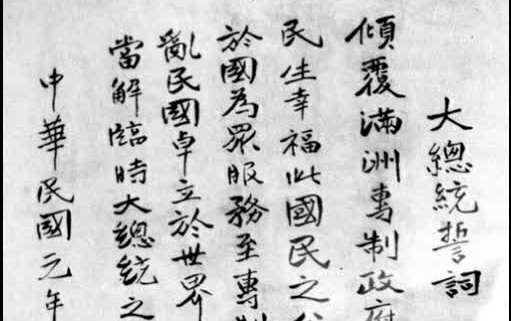 大總統誓詞
傾覆滿洲專制政府
民生幸福此國民之公
於國為眾服務至專制
亂民國卓立於世界
當解臨時大總統之
中華民國元年